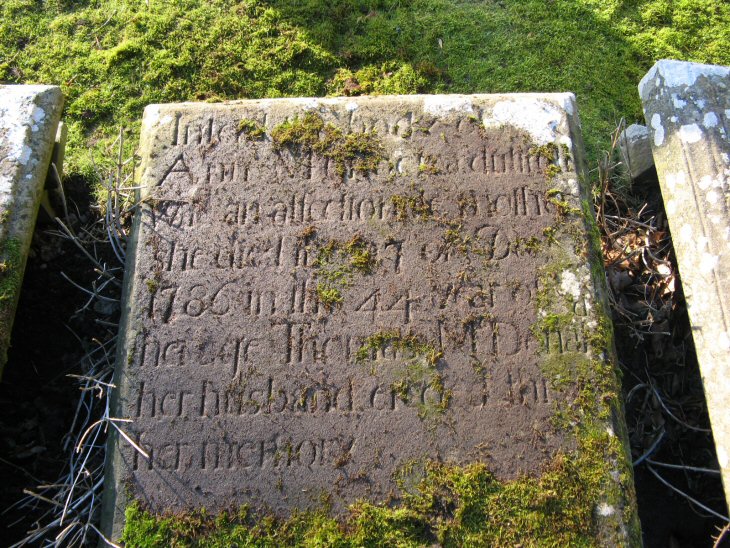 Inter'd
Ann a dutiful
Wife an affectionate Mother
she died the 27 of De
1786 in the 44 year of
her age Thomas McDonal
her husband erected this
her memory